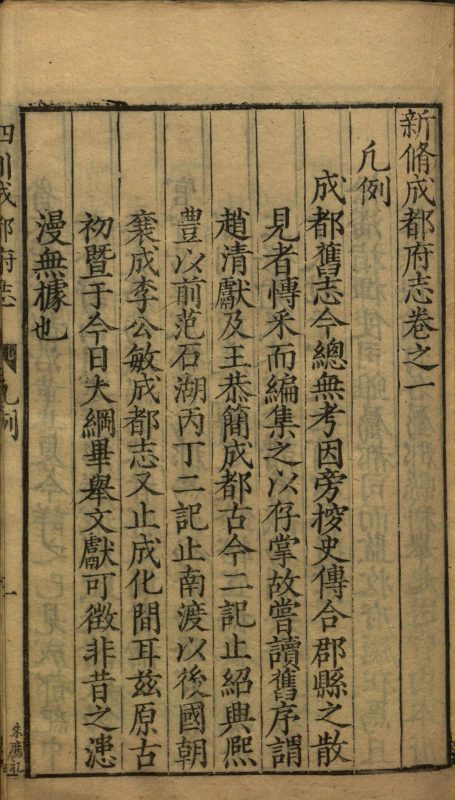 新脩成都府志卷之一
凡例
成都舊志今總無考因旁梭史傳合郡縣之散
見者慱釆而編集之以存掌故嘗讀舊序謂
趙清獻及王恭簡成都古今二記止紹興熈
豐以前范石湖丙丁二記止南渡以後國朝
袠成李公敏成都志又止成化間耳兹原古
初暨于今日大綱畢舉文獻可徴非昔之漶
漫無據也
四川成都府志
凡例
一
朱應礼